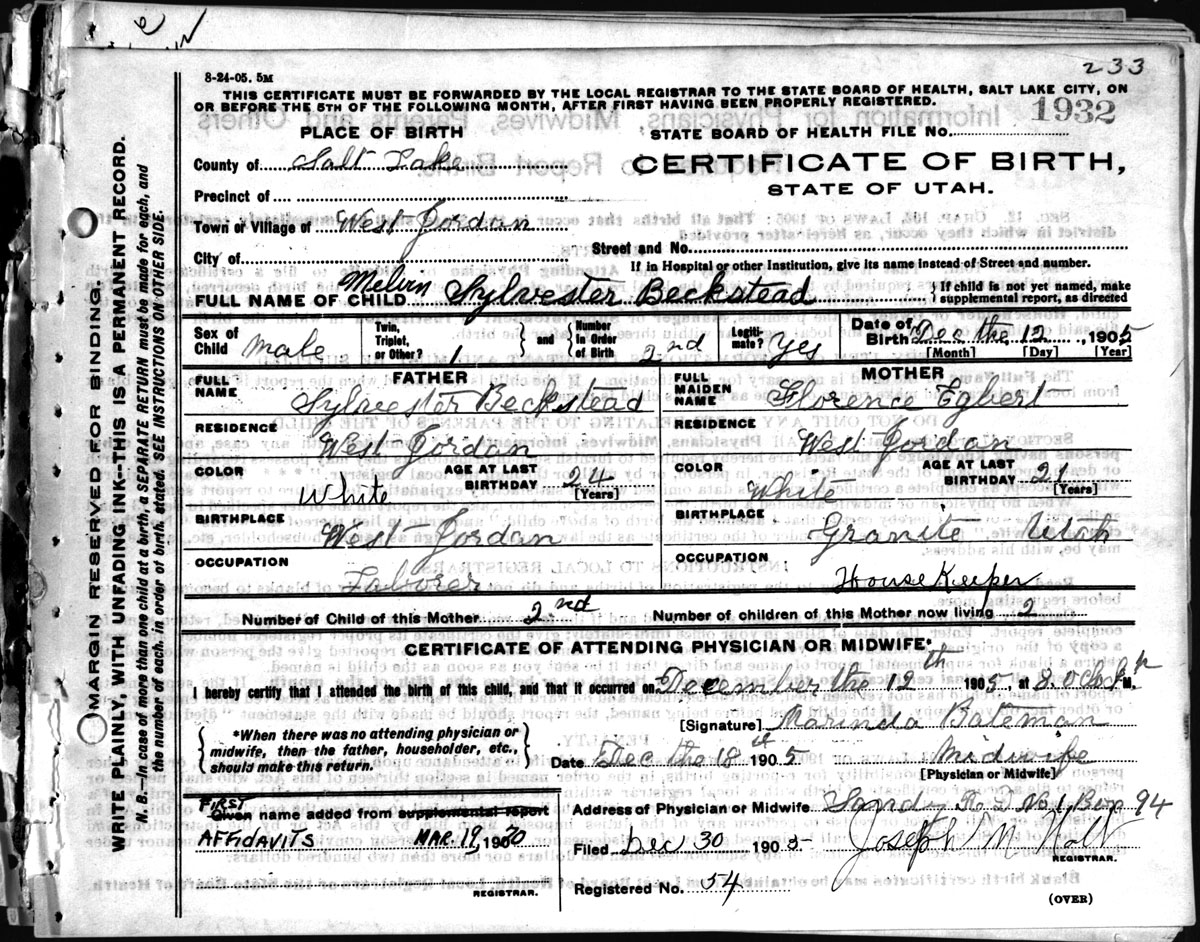 233
8-24-05. 5M
THIS CERTIFICATE MUST BE FORWARDED BY THE LOCAL REGISTRAR TO THE STATE BOARD OF HEALTH, SALT LAKE CITY, ON
OR BEFORE THE 5TH OF THE FOLLOWING MONTH, AFTER FIRST HAVING BEEN PROPERLY REGISTERED.
1932
PLACE OF BIRTH
STATE BOARD OF HEALTH FILE No.
County of Salt Lake
CERTIFICATE OF BIRTH,
STATE OF UTAH.
Precinct of
Town or Village of West Jordan
Street and No.
City of
If in Hospital or other Institution, give its name instead of Street and number.
FULL NAME OF CHILD Melvin Sylvester Beckstead
} If child is not yet named, make
supplemental report, as directed
Sex of Child male
Twin, Triplet, or Other? 1
} and {
Number in Order of Birth 2nd
Legitimate? Yes
Date of Birth Dec the 12, 1905
[Month] [Day] [Year]
FATHER
FULL NAME Sylvester Beckstead
RESIDENCE West Jordan
COLOR White
AGE AT LAST BIRTHDAY 24
[Years]
BIRTHPLACE West Jordan
OCCUPATION Laborer
MOTHER
FULL MAIDEN NAME Florence Egbert
RESIDENCE West Jordan
COLOR White
AGE AT LAST BIRTHDAY 21
[Years]
BIRTHPLACE Granite Utah
OCCUPATION House Keeper
Number of Child of this Mother 2nd
Number of children of this Mother now living 2
CERTIFICATE OF ATTENDING PHYSICIAN OR MIDWIFE*
I hereby certify that I attended the birth of this child, and that it occurred on December the 12th 1905, at 8. oclock P M.
[Signature] Marinda Bateman
{ *When there was no attending physician or
midwife, then the father, householder, etc.,
should make this return. }
Date Dec the 18th 1905
Midwife
[Physician or Midwife]
FIRST
Given name added from supplemental report
AFFIDAVITS MAR. 19, 1970
REGISTRAR.
Address of Physician or Midwife Sandy R. D. No 1, Box 94
Filed Dec 30 1905 Joseph M. Holt
REGISTRAR.
Registered No. 54
(OVER)
MARGIN RESERVED FOR BINDING
WRITE PLAINLY, WITH UNFADING INK--THIS IS A PERMANENT RECORD.
N. B.--In case of more than one child at a birth, a SEPARATE RETURN must be made for each, and
the number of each, in order of birth, stated. SEE INSTRUCTIONS ON OTHER SIDE.